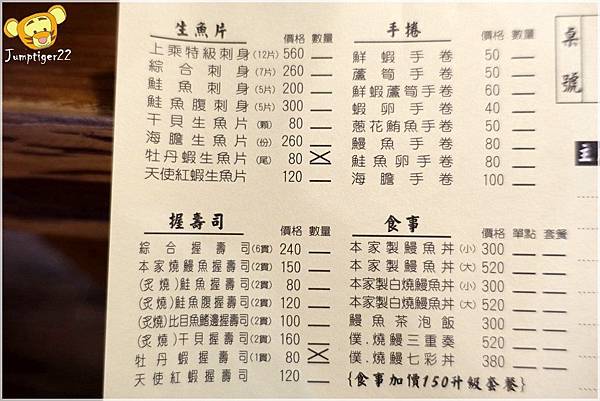 Jumptiger22
生魚片 價格 數量
上乘特級刺身(12片) 560
綜合刺身(7片) 260
鮭魚刺身(5片) 200
鮭魚腹刺身(5片) 300
干貝生魚片(顆) 80
海膽生魚片(份) 260
牡丹蝦生魚片(尾) 80
天使紅蝦生魚片 120
手捲 價格 數量
鮮蝦手卷 50
蘆筍手卷 50
鮮蝦蘆筍手卷 60
蝦卵手卷 40
蔥花鮪魚手卷 50
鰻魚手卷 80
鮭魚卵手卷 80
海膽手卷 100
桌號
握壽司 價格 數量
綜合握壽司(6貫) 240
本家燒鰻魚握壽司(2貫) 150
(炙燒)鮭魚握壽司(2貫) 80
(炙燒)鮭魚腹握壽司(2貫) 120
(炙燒)比目魚鰭邊握壽司(2貫) 100
(炙燒)干貝握壽司(2貫) 160
牡丹蝦握壽司(2貫) 80
天使紅蝦握壽司 120
食事 價格 單點 套餐
本家製鰻魚丼(小) 300
本家製鰻魚丼(大) 520
本家製白燒鰻魚丼(小) 300
本家製白燒鰻魚丼(大) 520
鰻魚茶泡飯 300
僕.燒鰻三重奏 520
僕.燒鰻七彩丼 380
{食事加價150升級套餐}